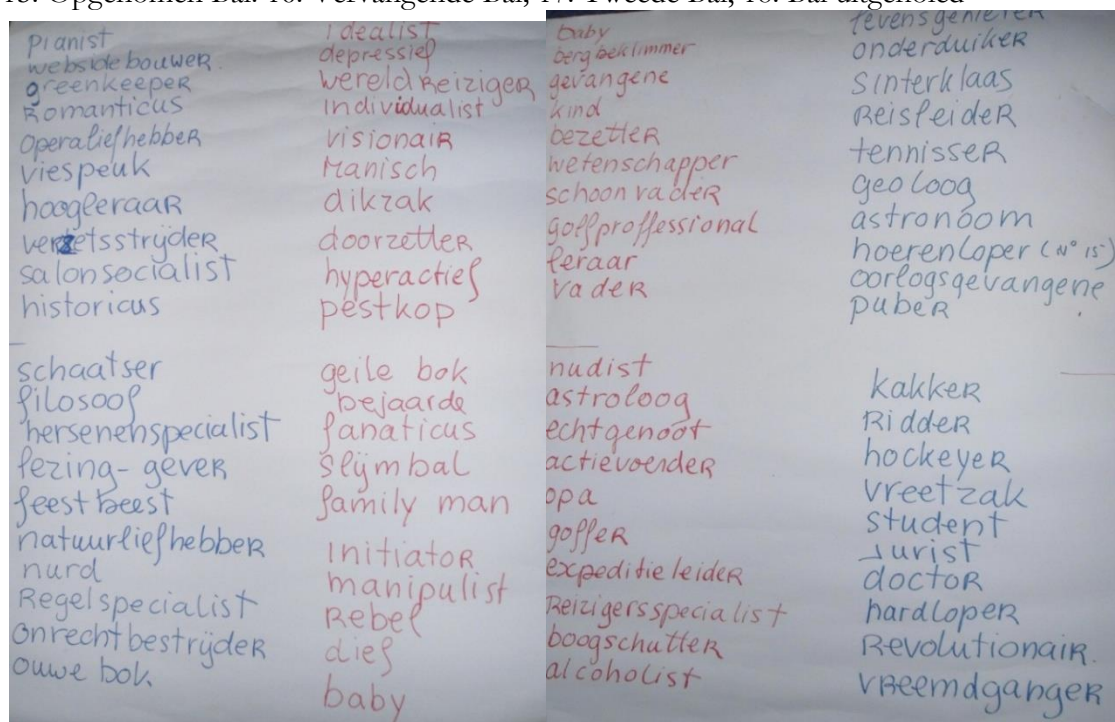 18. Opgenomen Bal. 16. Vervangende Bal, 17. Tweede Bal, 18. Bal uitgeholed
pianist
websidebouwer.
greenkeeper
Romanticus
operaliefhebber
viespeuk
hoogleraar
verzetsstrijder
salonsocialist
historicus
schaatser
filosoof
hersenenspecialist
lezing-gever
feestbeest
natuurliefhebber
nurd
Regelspecialist
onrechtbestrijder
ouwe bok.
idealist
depressief
wereldreiziger
individualist
visionair
Manisch
dikzak
doorzetter
hyperactief
pestkop
geile bok
bejaarde
fanaticus
slijmbal
family man
initiator
manipulist
Rebel
dief
baby
baby
bergbeklimmer
gevangene
kind
bezetter
wetenschapper
schoonvader
golfproffessional
leraar
vader
nudist
astroloog
echtgenoot
actievoerder
opa
golfer
expeditieleider
Reizigersspecialist
boogschutter
alcoholist
levensgenieter
onderduiker
Sinterklaas
Reisleider
tennisser
geoloog
astronoom
hoerenloper (N° 15)
oorlogsgevangene
puber
kakker
Ridder
hockeyer
vreetzak
student
Jurist
doctor
hardloper
Revolutionair.
vreemdganger